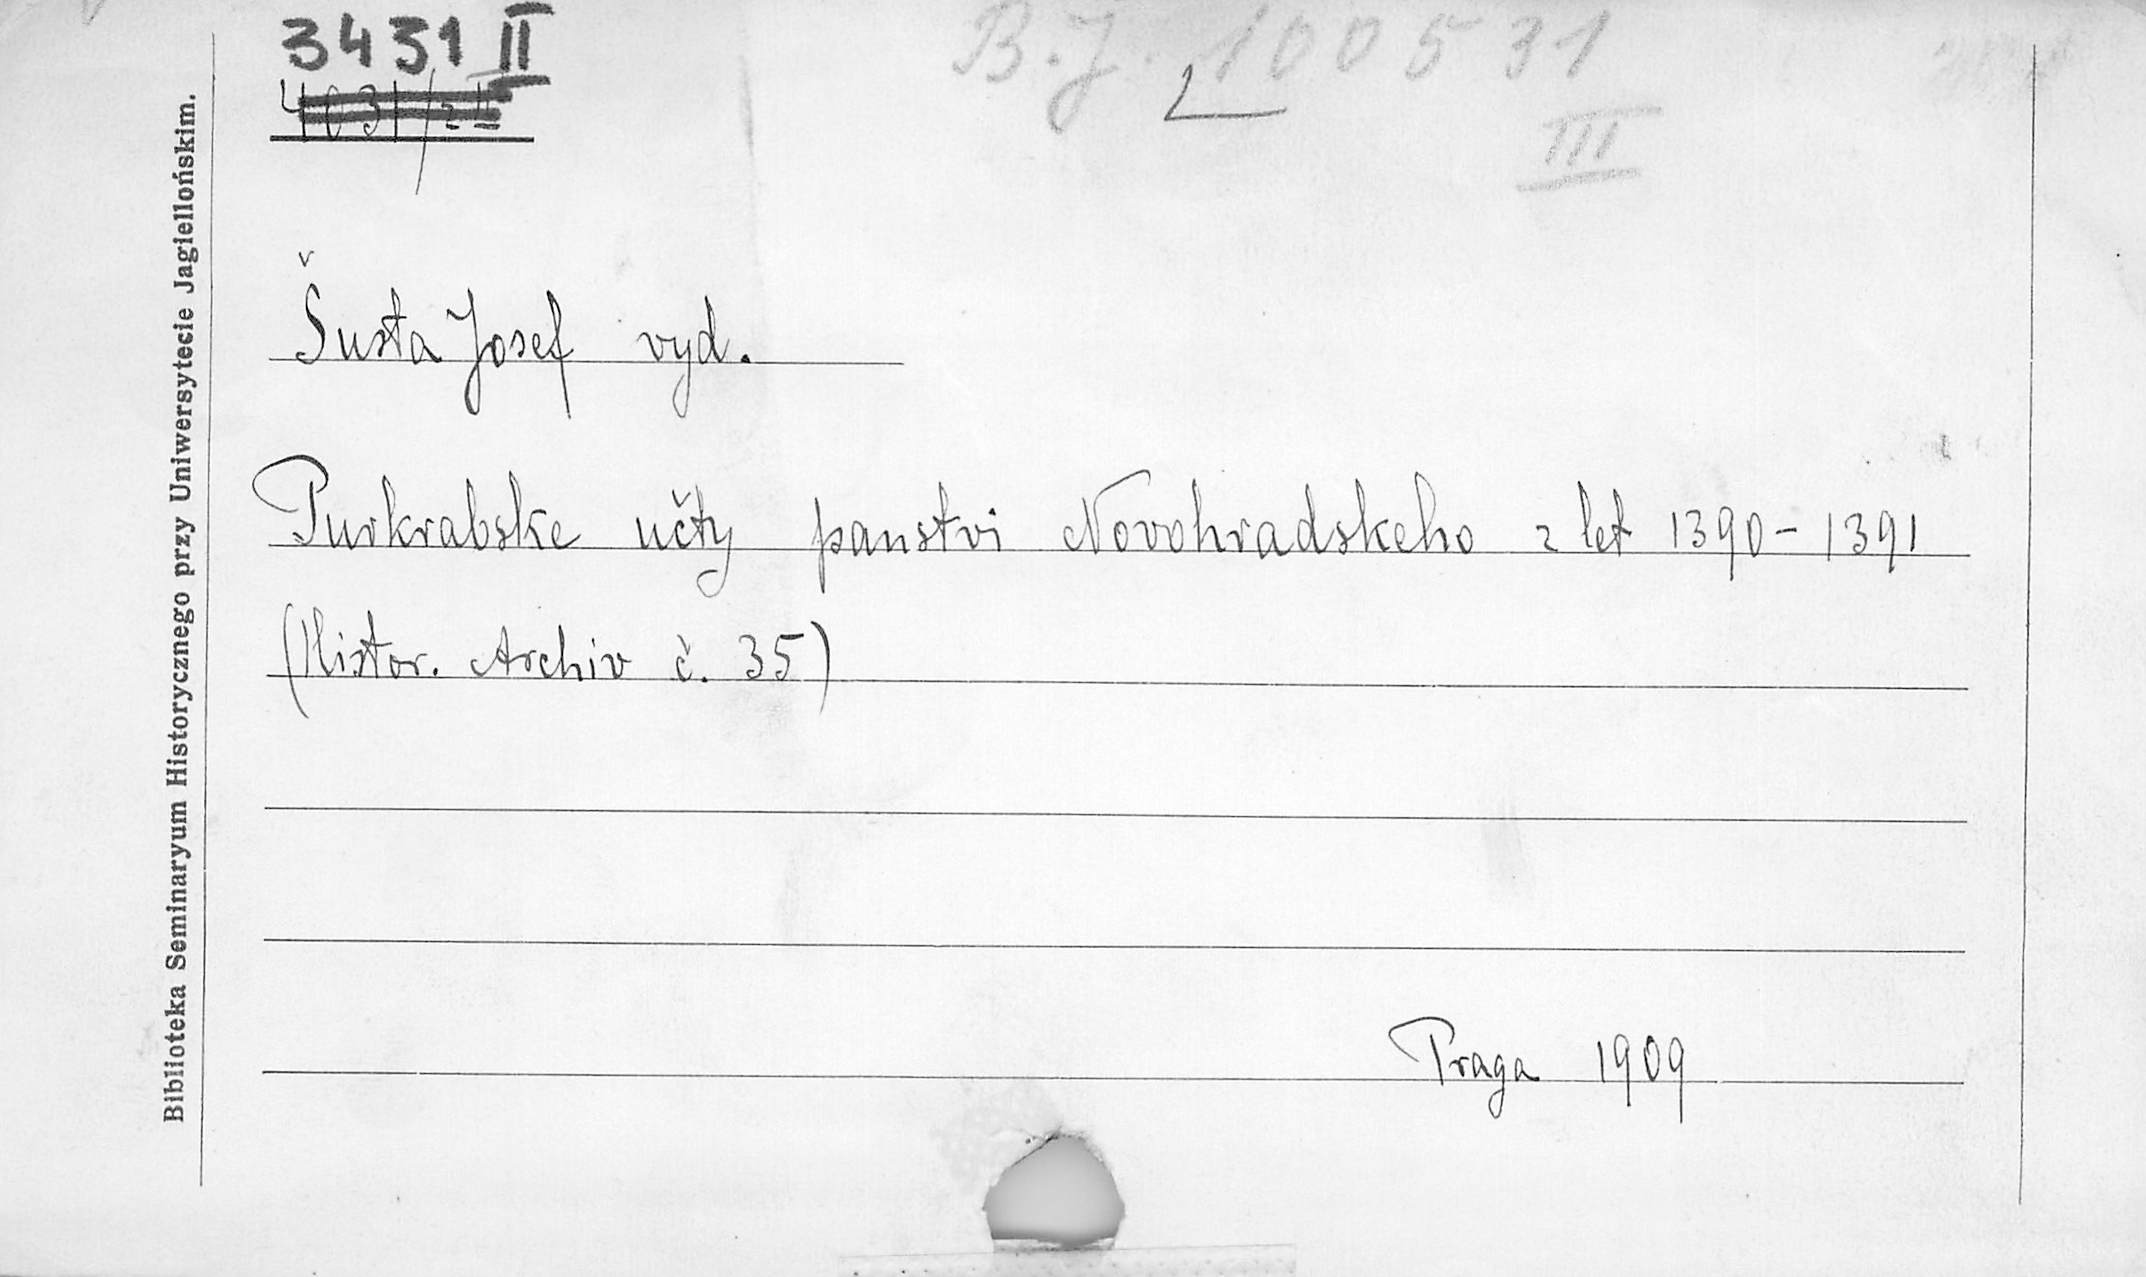 3431 II
B.J. 100531
III
Šusta Josef vyd.
Purkrabske učty panstvi Novohradskeho z let 1390-1391
(Histor. Archiv č. 35)
Praga 1909
Biblioteka Seminaryum Historycznego przy Uniwersytecie Jagiellońskim.